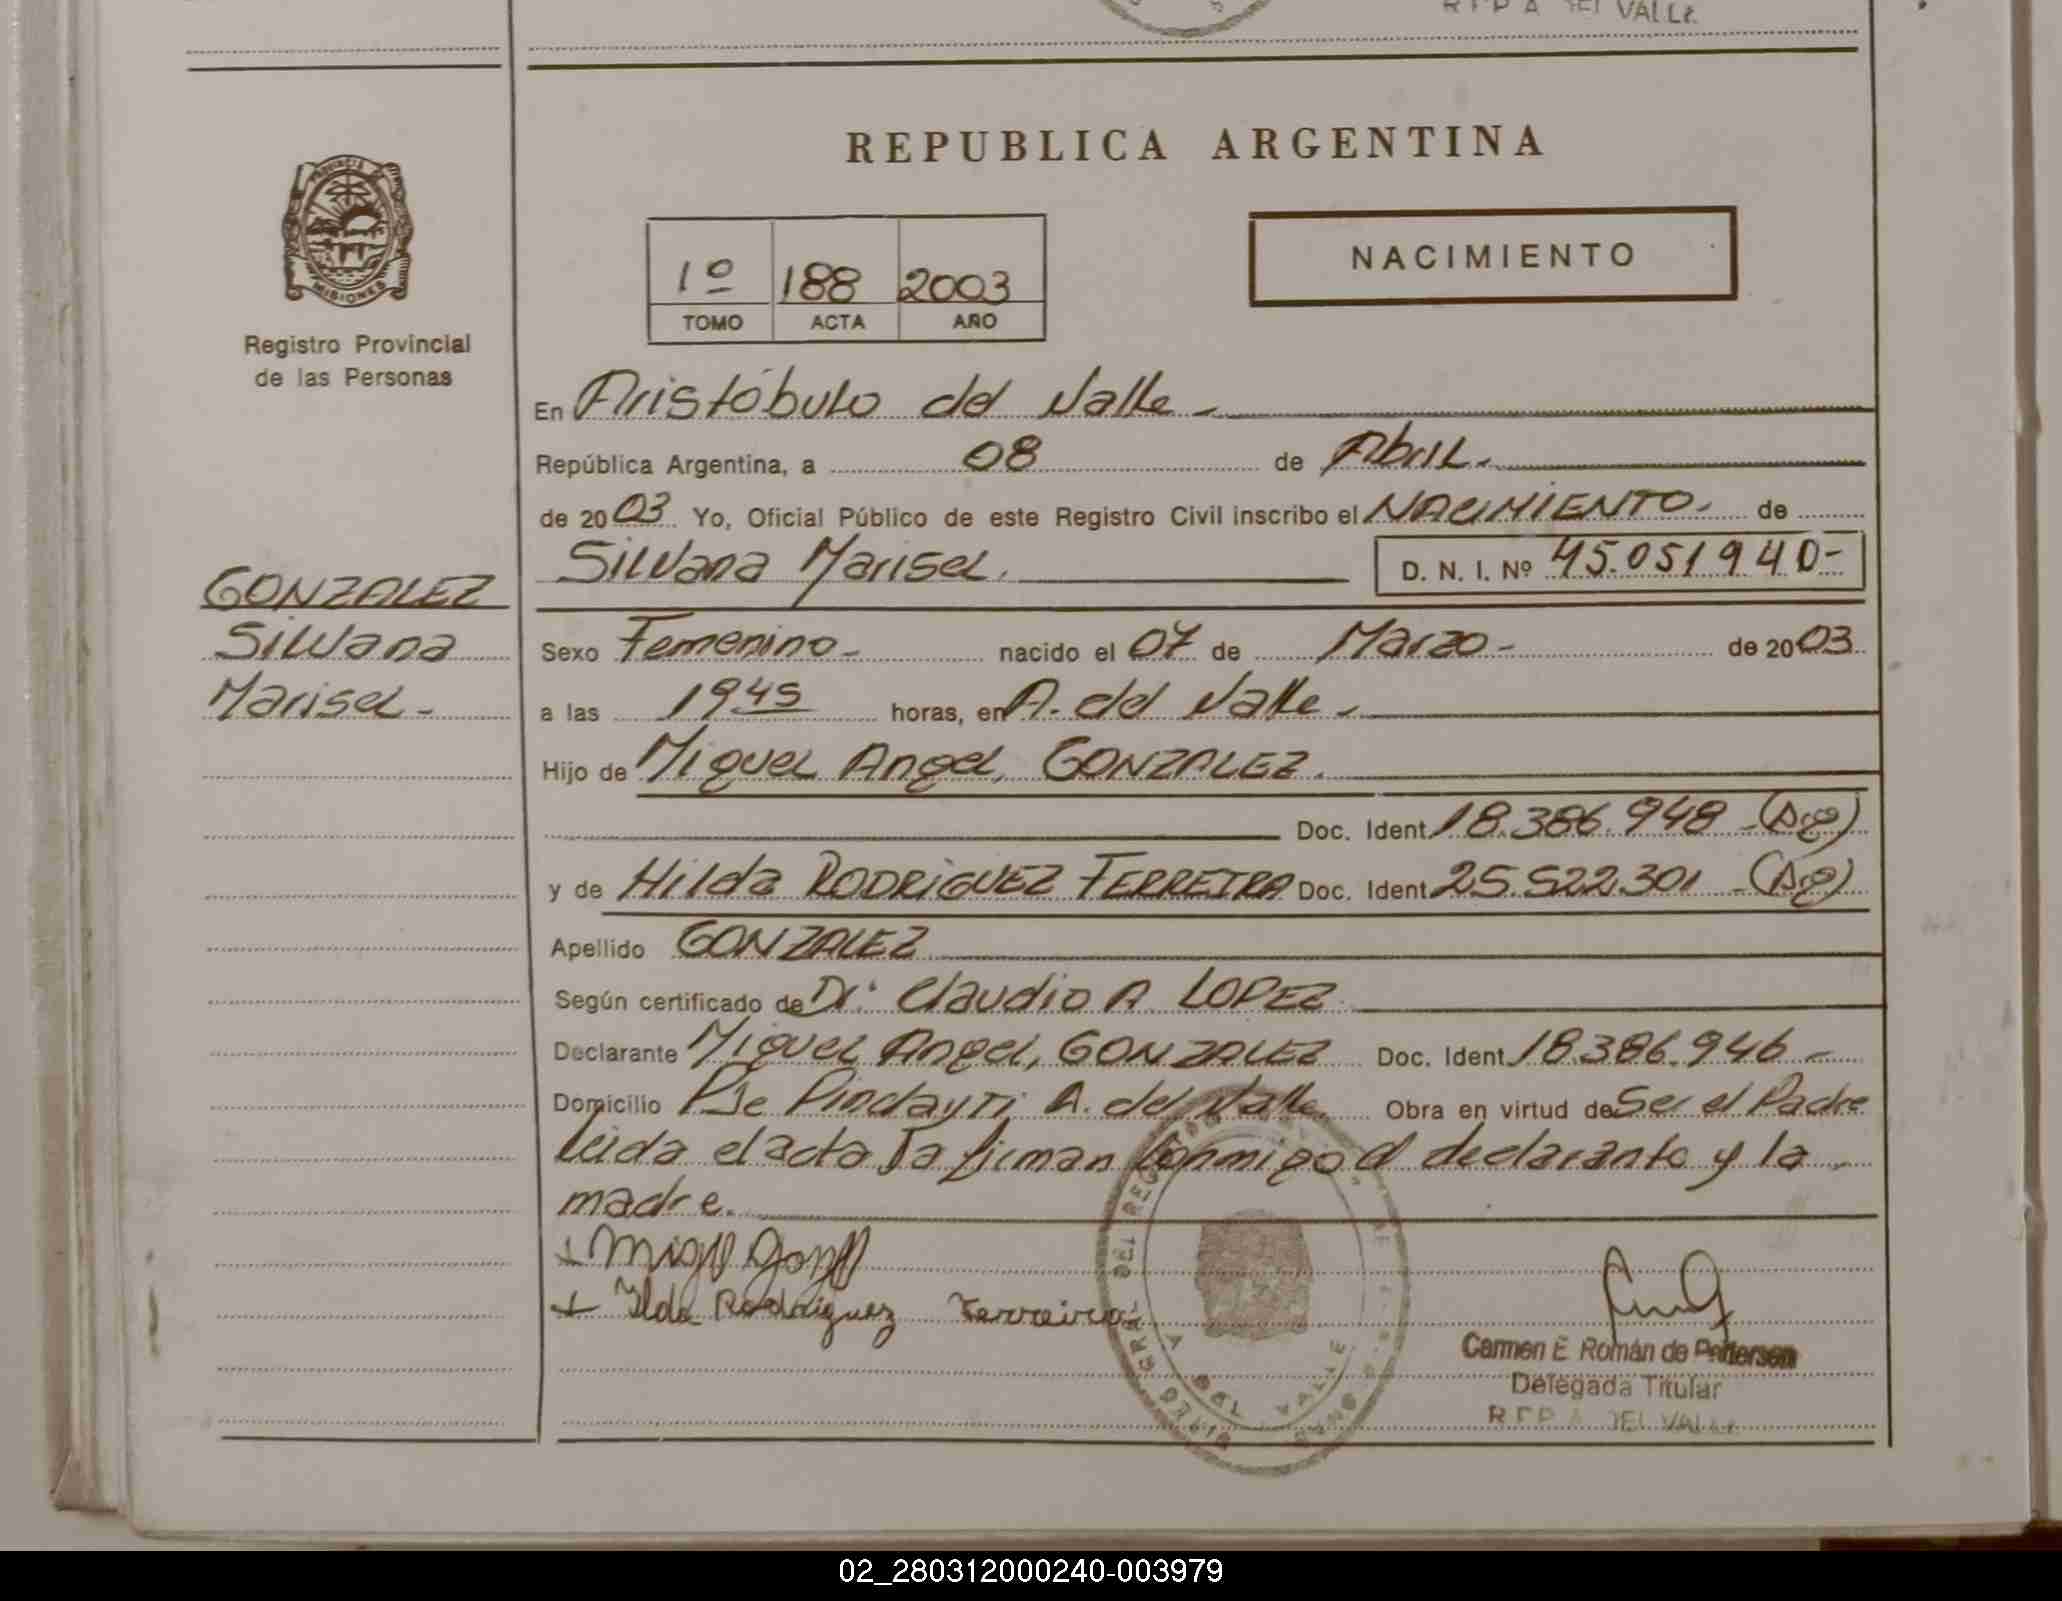 REPUBLICA ARGENTINA
PROVINCIA
MISIONES
Registro Provincial
de las Personas
1º 188 2003
TOMO ACTA AÑO
NACIMIENTO
En Aristóbulo del Valle -
República Argentina, a 08 de Abril.
de 2003 Yo, Oficial Público de este Registro Civil inscribo el NACIMIENTO. de
Silvana Marisel. D. N. I. Nº 45.051940-
GONZALEZ
Silvana
Marisel -
Sexo Femenino - nacido el 07 de Marzo - de 2003
a las 19 45 horas, en A. del Valle -
Hijo de Miguel Angel, GONZALEZ.
Doc. Ident. 18.386.948 - (Arg)
y de Hilda RODRIGUEZ FERREIRA Doc. Ident. 25.522.301 - (Arg)
Apellido GONZALEZ
Según certificado de Dr. Claudio A. LOPEZ.
Declarante Miguel Angel, GONZALEZ Doc. Ident. 18.386.946 -
Domicilio Pje Pindayti A. del Valle. Obra en virtud de Ser el Padre
leida el acta la firman conmigo el declarante y la
madre.
Ilda Rodriguez Ferreira
Carmen E. Román de Pettersen
Delegada Titular
DEL VALLE
02_280312000240-003979